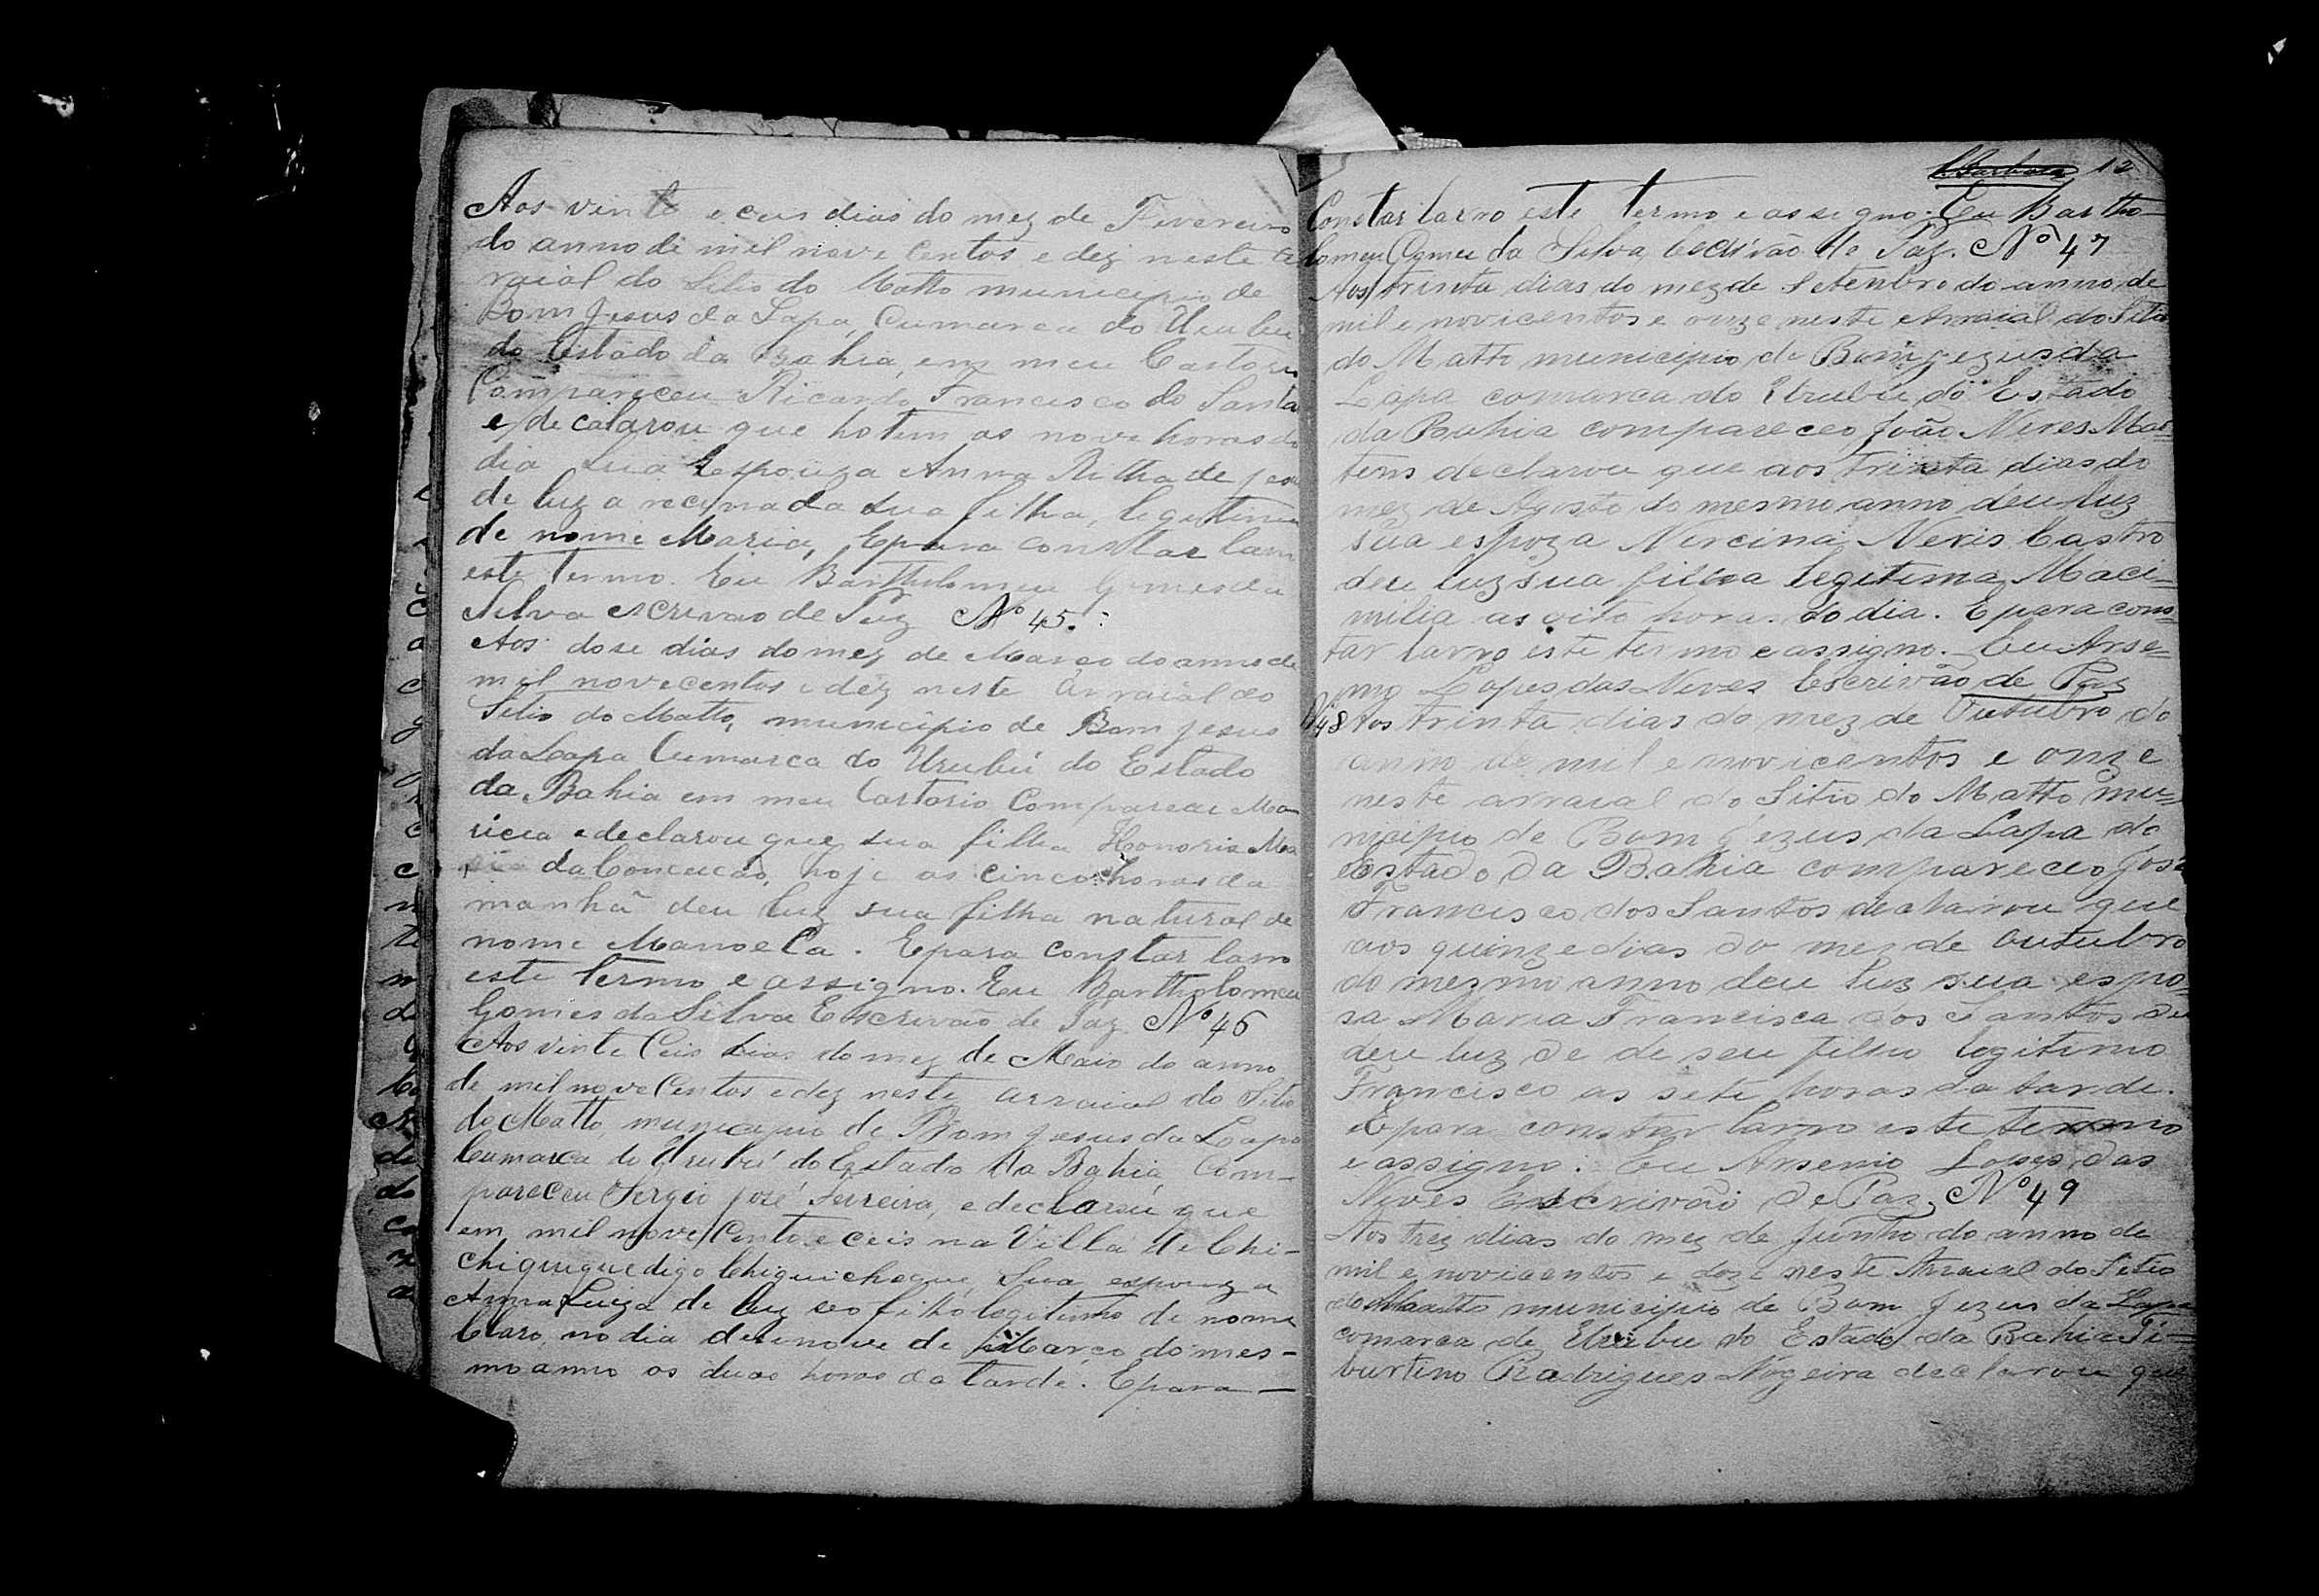 Aos vinte e ceis dias do mez de Fevereiro
do anno de mil nove Centos e dez neste
raial do Sitio do Matto municipio de
Bom Jesus da Lapa, Cumarca do Urubu
do Estado da Bahia, em meu Cartorio
Compareceu Ricardo Francisco do Santa
e decalarou que hotem as nove horas do
dia sua Espouza Anna Ritha de
de luz a recem nada sua filha, legitima
de nome Maria, E para constar lavro
este termo. Eu Bartholomeu Gomes da
Silva escrivao de Paz Nº 45.
Aos dose dias do mez de Março do anno de
mil novecentos e dez neste Arraial do
Sitio do Matto, municipio de Bom Jesus
da Lapa Cumarca do Urubú do Estado
da Bahia em meu Cartorio Compareceu Mau
ricia e declarou que sua filha Honoria Ma
ria da Conceicão, hoje as cinco horas da
manhã deu luz sua filha natural de
nome Manoela. E para constar lavro
este termo e assigno. Eu Bartholomeu
Gomes da Silva Escrivaõ de Paz Nº 46
Aos vinte Ceis dias do mez de Maio do anno
de mil nove Centos e dez neste arraial do Sitio
do Matto, municipio de Bom Jesus da Lapa
Cumarca do Urubú do Estado da Bahia, Com-
pareceu Sergio José Ferreira, e declarou que
em mil nove Cento e ceis na Villa de Chi-
chiquique digo Chiquichique, Sua espouza
Anna Luiza de luz seo filho legitimo de nome
Claro, no dia desenove de Março do mes-
mo anno as duas horas da tarde. E para —
12
Constar lavro este termo e assigno. Eu Bartho-
lomeu Gomes da Silva Escrivão de Paz. Nº 47
Aos trinta dias do mez de Setembro do anno de
mil e novicentos e onze neste Arraial do Sitio
do Matto municipio de Bom jezus da
Lapa comarca do Urubu do Estado
da Bahia compareceo João Neres Mar-
tens declarou que aos trinta dias do
mez de Agosto do mesmo anno deu luz
sua espoza Nercina Neris Castro
deu luz sua filha legitima Maci-
milia as oito hora. do dia. E para cons-
tar lavro este termo e assigno. Eu Arse-
nio Lopes das Neves Escrivão de Paz
Nº 48 Aos trinta dias do mez de Outubro do
anno de mil e novicentos e onze
neste arraial do Sitio do Matto mu-
nicipio de Bom Jezus da Lapa do
Estado da Bahia compareceo José
Francisco dos Santos declarou que
aos quinze dias do mez de Outubro
do mesmo anno deu luz sua espo-
sa Maria Francisca dos Santos de
deu luz de de seu filho legitimo
Francisco as sete horas da tarde.
E para constar lavro este termo
e assigno. Eu Arsenio Lopes das
Neves Escrivão de Paz. Nº 49
Aos trez dias do mez de Junho do anno de
mil e novicentos e doze neste Arraial do Sitio
do Matto municipio de Bom Jezus da Lapa
comarca de Urubu do Estado da Bahia Ti-
burtino Rodrigues Nogeira declarou que